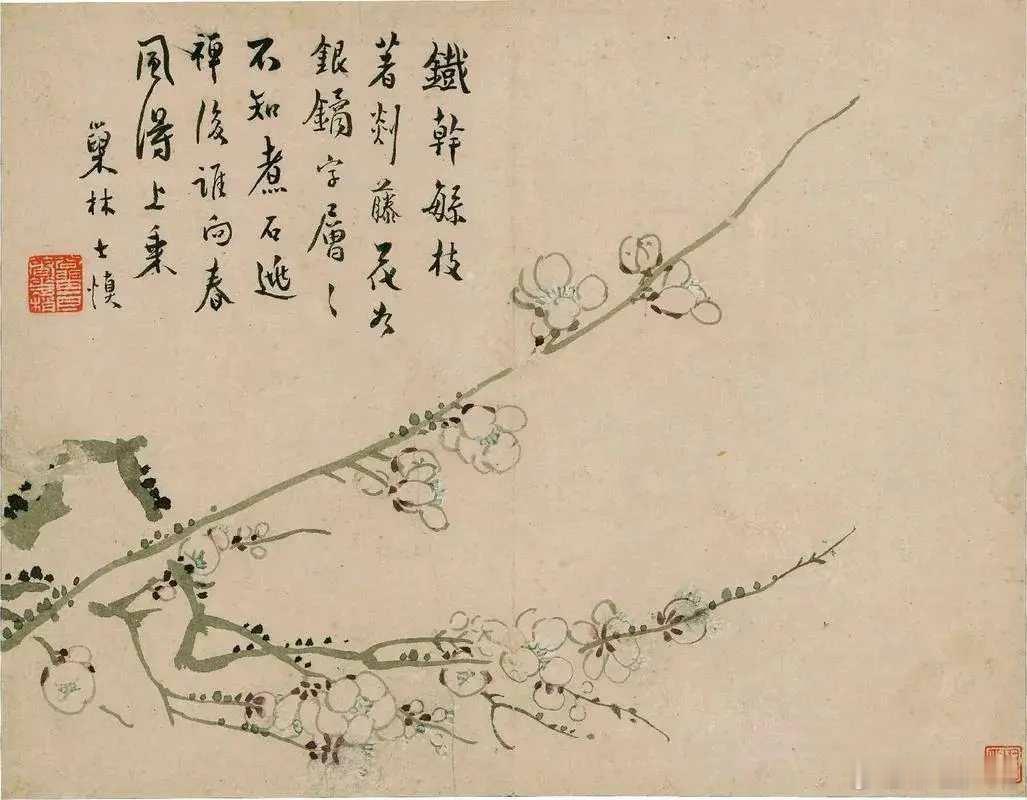 鐵幹緐枝
著剡藤花
銀鐍字層〻
不知煮石逃
禪後誰向春
風得上乘
巢林士慎